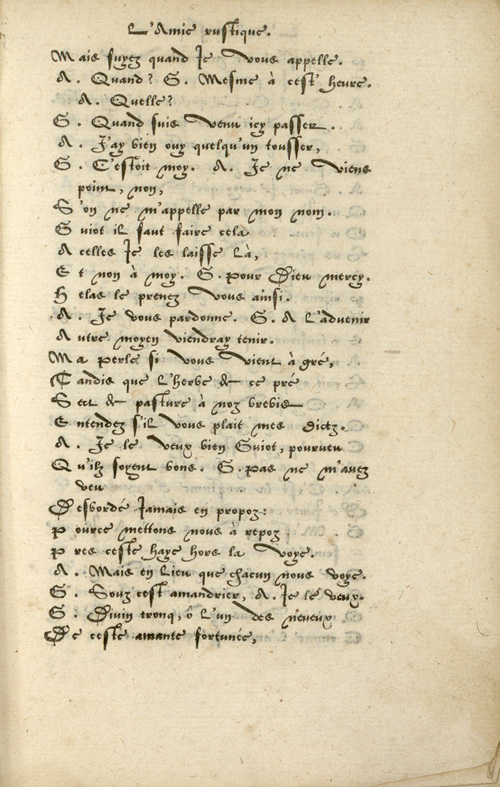 L'Amie rustique.
Mais fuyez quand Je vous appelle.
A. Quand? G. Mesme à cest' heure.
A. Quelle?
G. Quand suis venu icy passer.
A. J'ay bien ouy quelqu'un tousser,
G. C'estoit moy. A. Je ne viens
point, non,
S'on ne m'appelle par mon nom.
Guiot il faut faire cela
A celles Je les laisse là,
Et non à moy. G. pour Dieu mercy.
Helas le prenez vous ainsi.
A. Je vous pardonne. G. A L'advenir
Autre moyen viendray tenir.
Ma perle si vous vient à gré,
Tandis que l'herbe de ce pré
Sert de pasture à noz brebis
Entendez s'il vous plait mes dictz.
A. Je le veux bien Guiot, pourveu
Qu'ilz soyent bons. G. pas ne m'avez
veu
Desbordé Jamais en propoz:
pource mettons nous à repoz
pres ceste haye hors la voye.
A. Mais en Lieu que chacun nous voye.
G. Souz cest amandrier, A. Je le veux.
G. Divin tronq, ô L'un des neveux
De ceste amante fortunée,